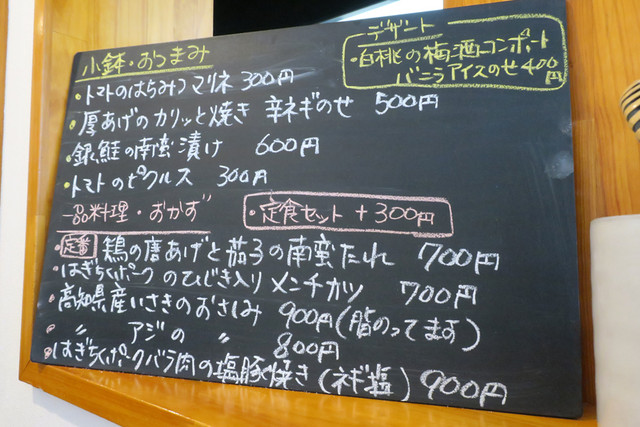 小鉢・おつまみ
・トマトのはちみつマリネ 300円
・厚あげのカリッと焼き 辛ネギのせ 500円
・銀鮭の南蛮漬け 600円
・トマトのピクルス 300円
デザート
・白桃の梅酒コンポート
バニラアイスのせ 400円
一品料理・おかず
・定食セット +300円
・定番 鶏の唐あげと茄子の南蛮たれ 700円
・はぎちくポークのひじき入りメンチカツ 700円
・高知県産いさきのおさしみ 900円(脂のってます)
・〃 アジの 〃 800円
・はぎちくポークバラ肉の塩豚焼き(ネギ塩) 900円